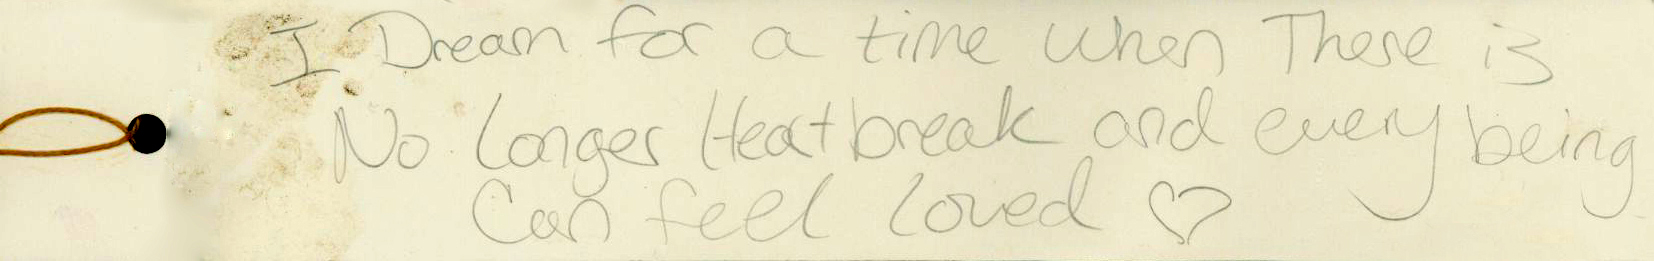 I Dream for a time when There is
No Longer Heatbreak and every being
Can feel Loved ♡